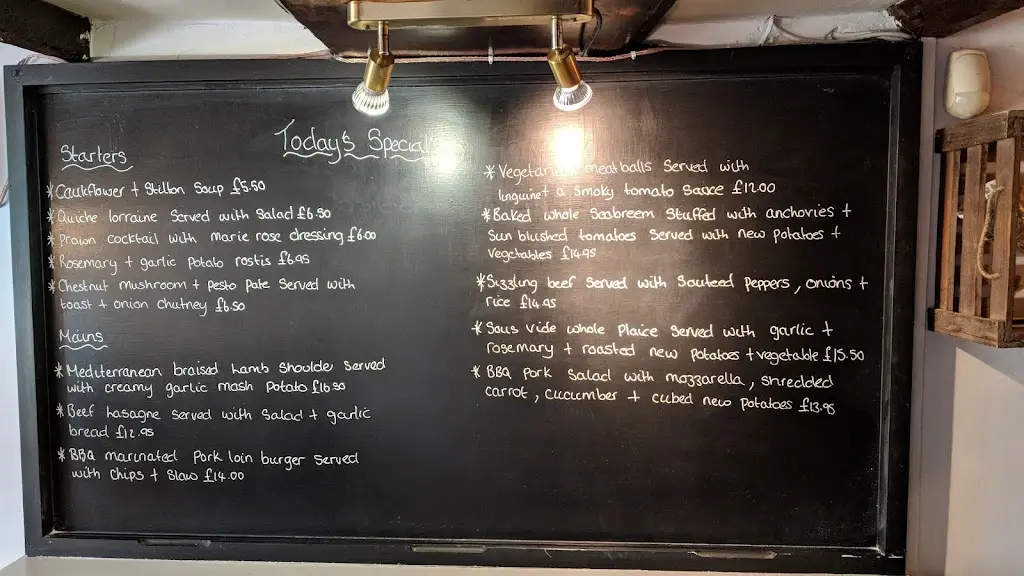 Today's Special
Starters
* Cauliflower + Stilton Soup £5.50
* Quiche lorraine Served with Salad £6.50
* Prawn cocktail with marie rose dressing £6.00
* Rosemary + garlic Potato rostis £6.95
* Chestnut mushroom + pesto pate Served with
toast + onion chutney £6.50
Mains
* Mediterranean braised Lamb Shoulder Served
with creamy garlic mash potato £16.50
* Beef Lasagne Served with Salad + garlic
bread £12.95
* BBQ marinated Pork loin burger Served
with Chips + Slaw £14.00
* Vegetarian meatballs Served with
linguine + a Smoky tomato Sauce £12.00
* Baked whole Seabream Stuffed with anchovies +
Sun blushed tomatoes Served with new potatoes +
vegetables £14.95
* Sizzling beef Served with Sauteed Peppers, onions +
rice £14.95
* Sous vide whole Plaice Served with garlic +
rosemary + roasted new potatoes + vegetable £15.50
* BBQ Pork Salad with mozzarella, shredded
carrot, cucumber + cubed new potatoes £13.95